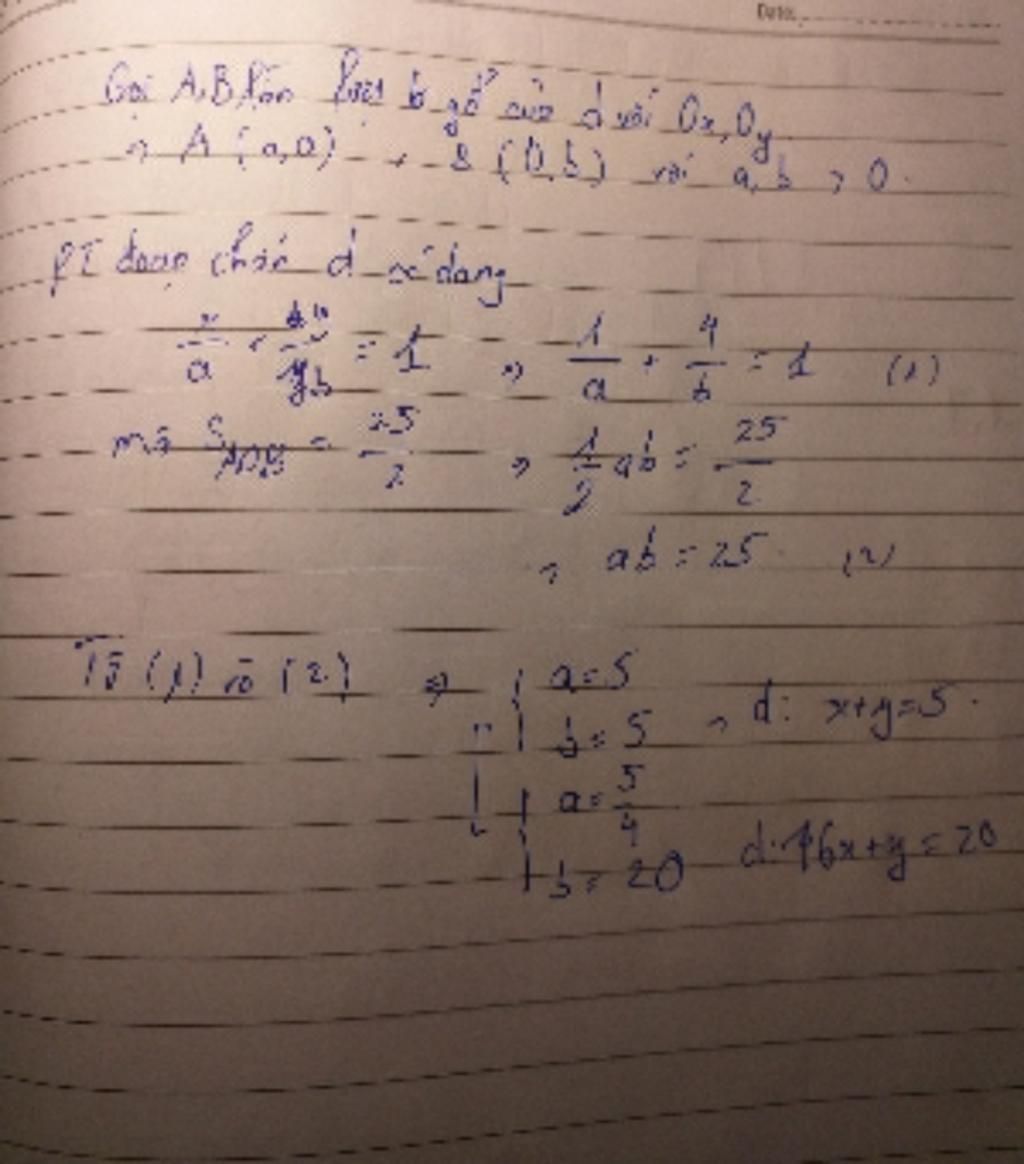 Date:
Gọi A, B lần lượt là gđ của d với Ox, Oy
⇒ A (a,0) , B (0,b) với a, b > 0.
PT đoạn chắn d có dạng
x/a + y/b = 1 ⇒ 1/a + 4/b = 1 (1)
mà S = 25/2 ⇒ 1/2 ab = 25/2
⇒ ab = 25. (2)
Từ (1) và (2) ⇒ a = 5
b = 5 ⇒ d: x+y=5.
a = 5/4
b = 20 d: 16x+y = 20